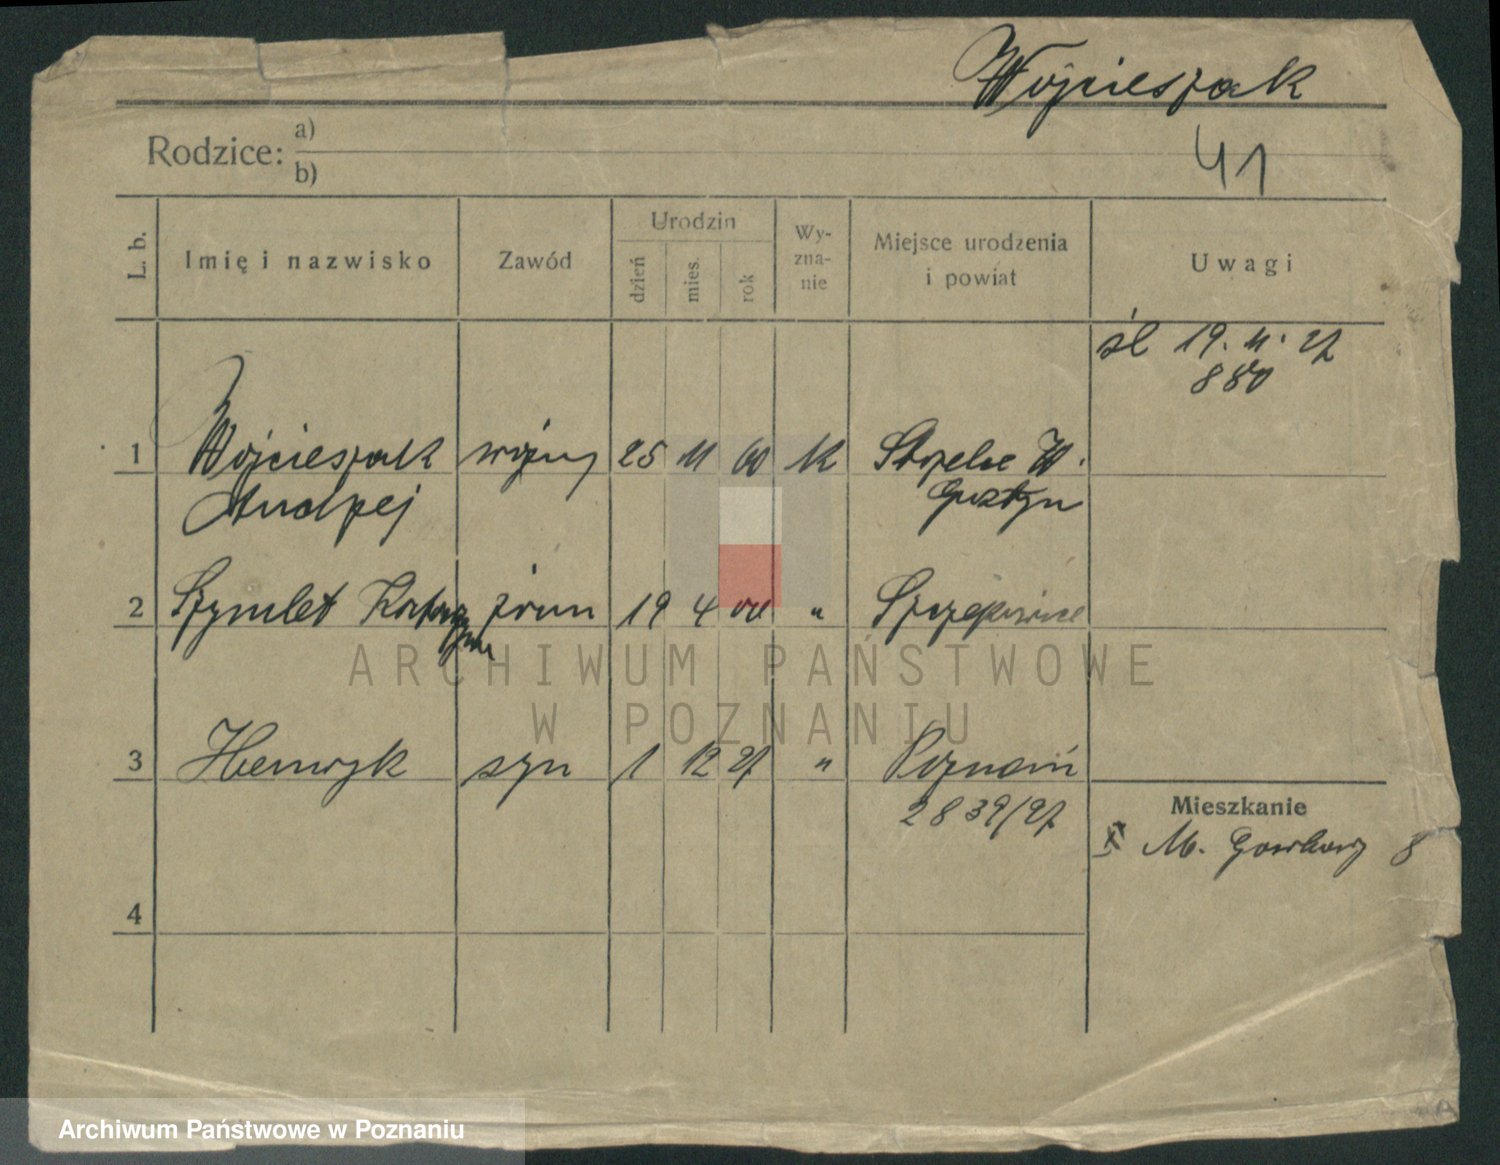 Wojcieszak
41
Rodzice: a)
b)
L. b.
Imię i nazwisko
Zawód
Urodzin
dzień
mies.
rok
Wy-
zna-
nie
Miejsce urodzenia
i powiat
Uwagi
śl 19. 11. 27
880
1 Wojcieszak 25 11 00 k Strzelce W.
Andrzej Gostyń
2 Szymlet Katarzyna żona 19 4 „
3 Henryk syn 1 12 27 „ Poznań
2839/27
Mieszkanie
M. Garbary 8
4
ARCHIWUM PAŃSTWOWE
W POZNANIU
Archiwum Państwowe w Poznaniu